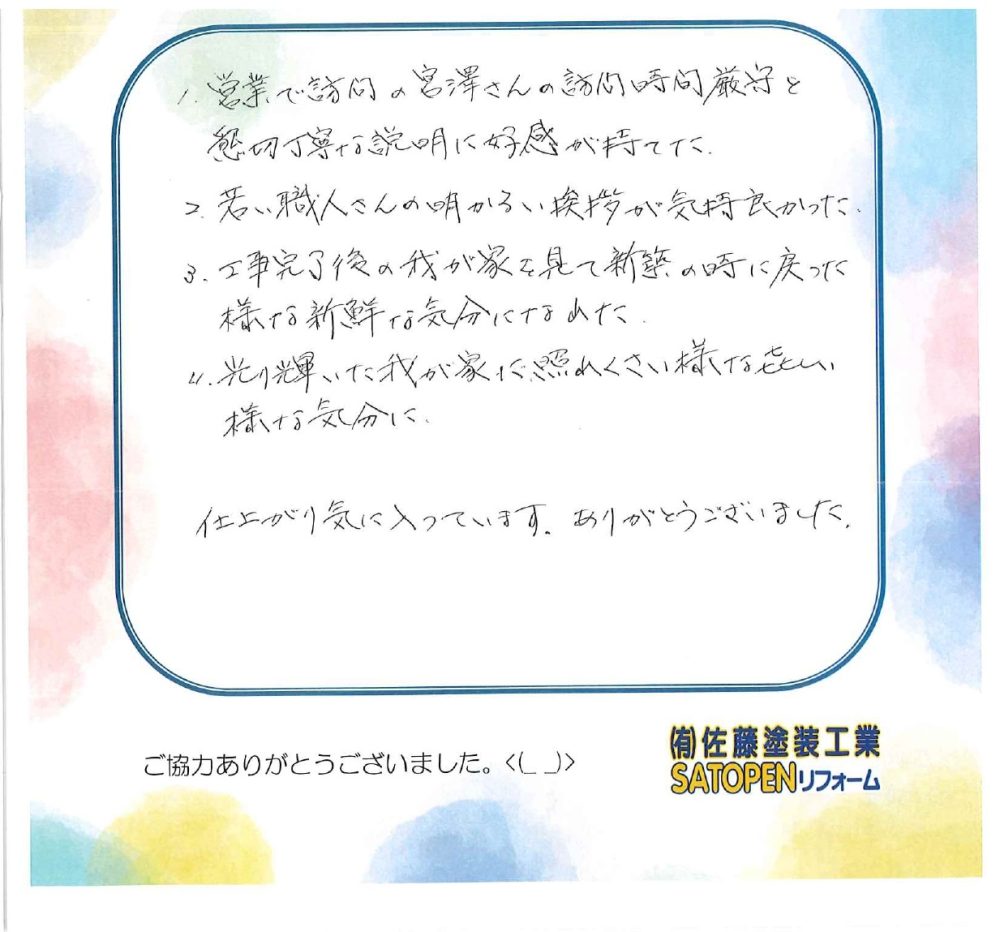 1. 営業で訪問の宮澤さんの訪問時間厳守と
懇切丁寧な説明に好感が持てた.
2. 若い職人さんの明かるい挨拶が気持良かった.
3. 工事完了後の我が家を見て新築の時に戻った
様な新鮮な気分になれた.
4. 光り輝いた我が家に照れくさい様な㐂しい
様な気分に.
仕上がり気に入っています. ありがとうございました.
ご協力ありがとうございました。<(_ _)>
㈲佐藤塗装工業
SATOPENリフォーム